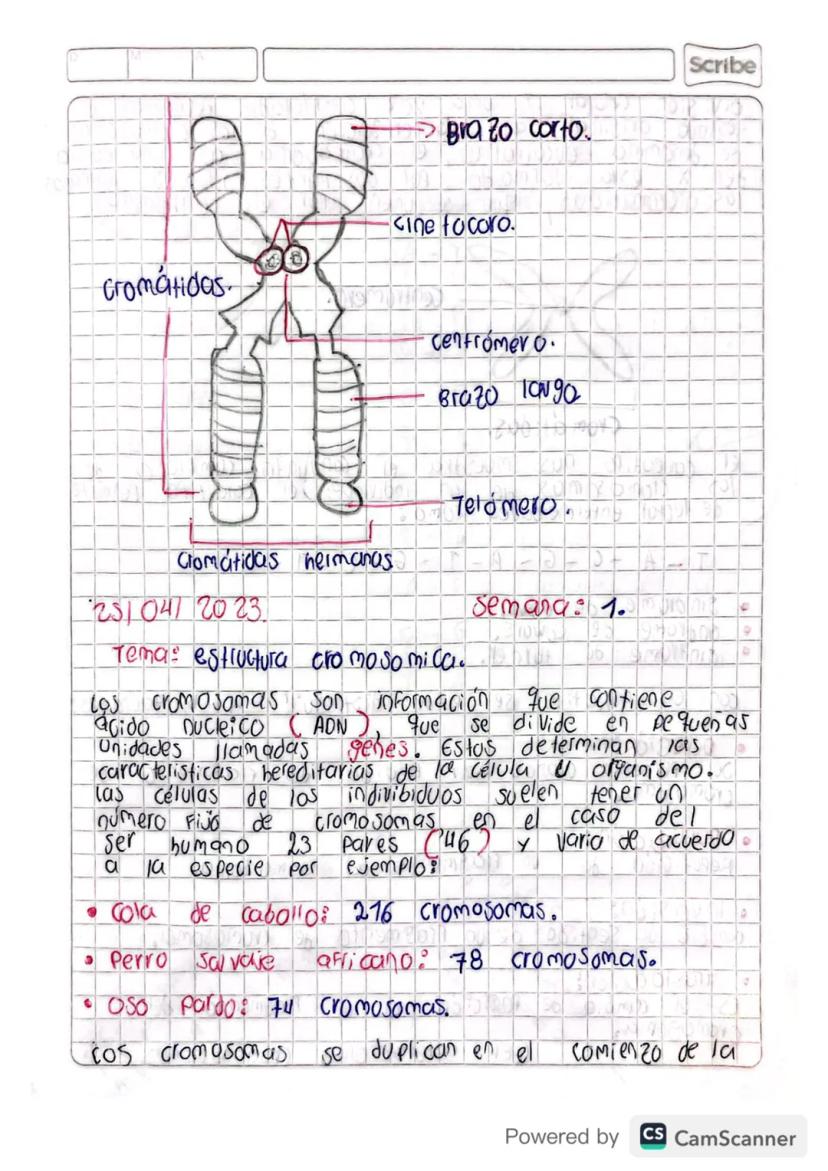 Scribe
Brazo corto.
cinetocoro.
cromátidas.
centrómero.
Brazo largo
Telómero.
cromátidas hermanas
25/04/2023.
semana: 1.
Tema: estructura cromosomica.
Los cromosomas son información que contiene
ácido nucleico (ADN), que se divide en pequeñas
unidades llamadas genes. Estos determinan las
caracteristicas hereditarias de la célula u organismo.
Las células de los indivibiduos suelen tener un
número fijo de cromosomas en el caso del
ser humano 23 pares (46) y varia de acuerdo
a la especie por ejemplo:
• Cola de caballo: 216 cromosomas.
• Perro salvaje africano: 78 cromosomas.
• Oso pardo: 74 cromosomas.
Los cromosomas se duplican en el comienzo de la
Powered by CS CamScanner